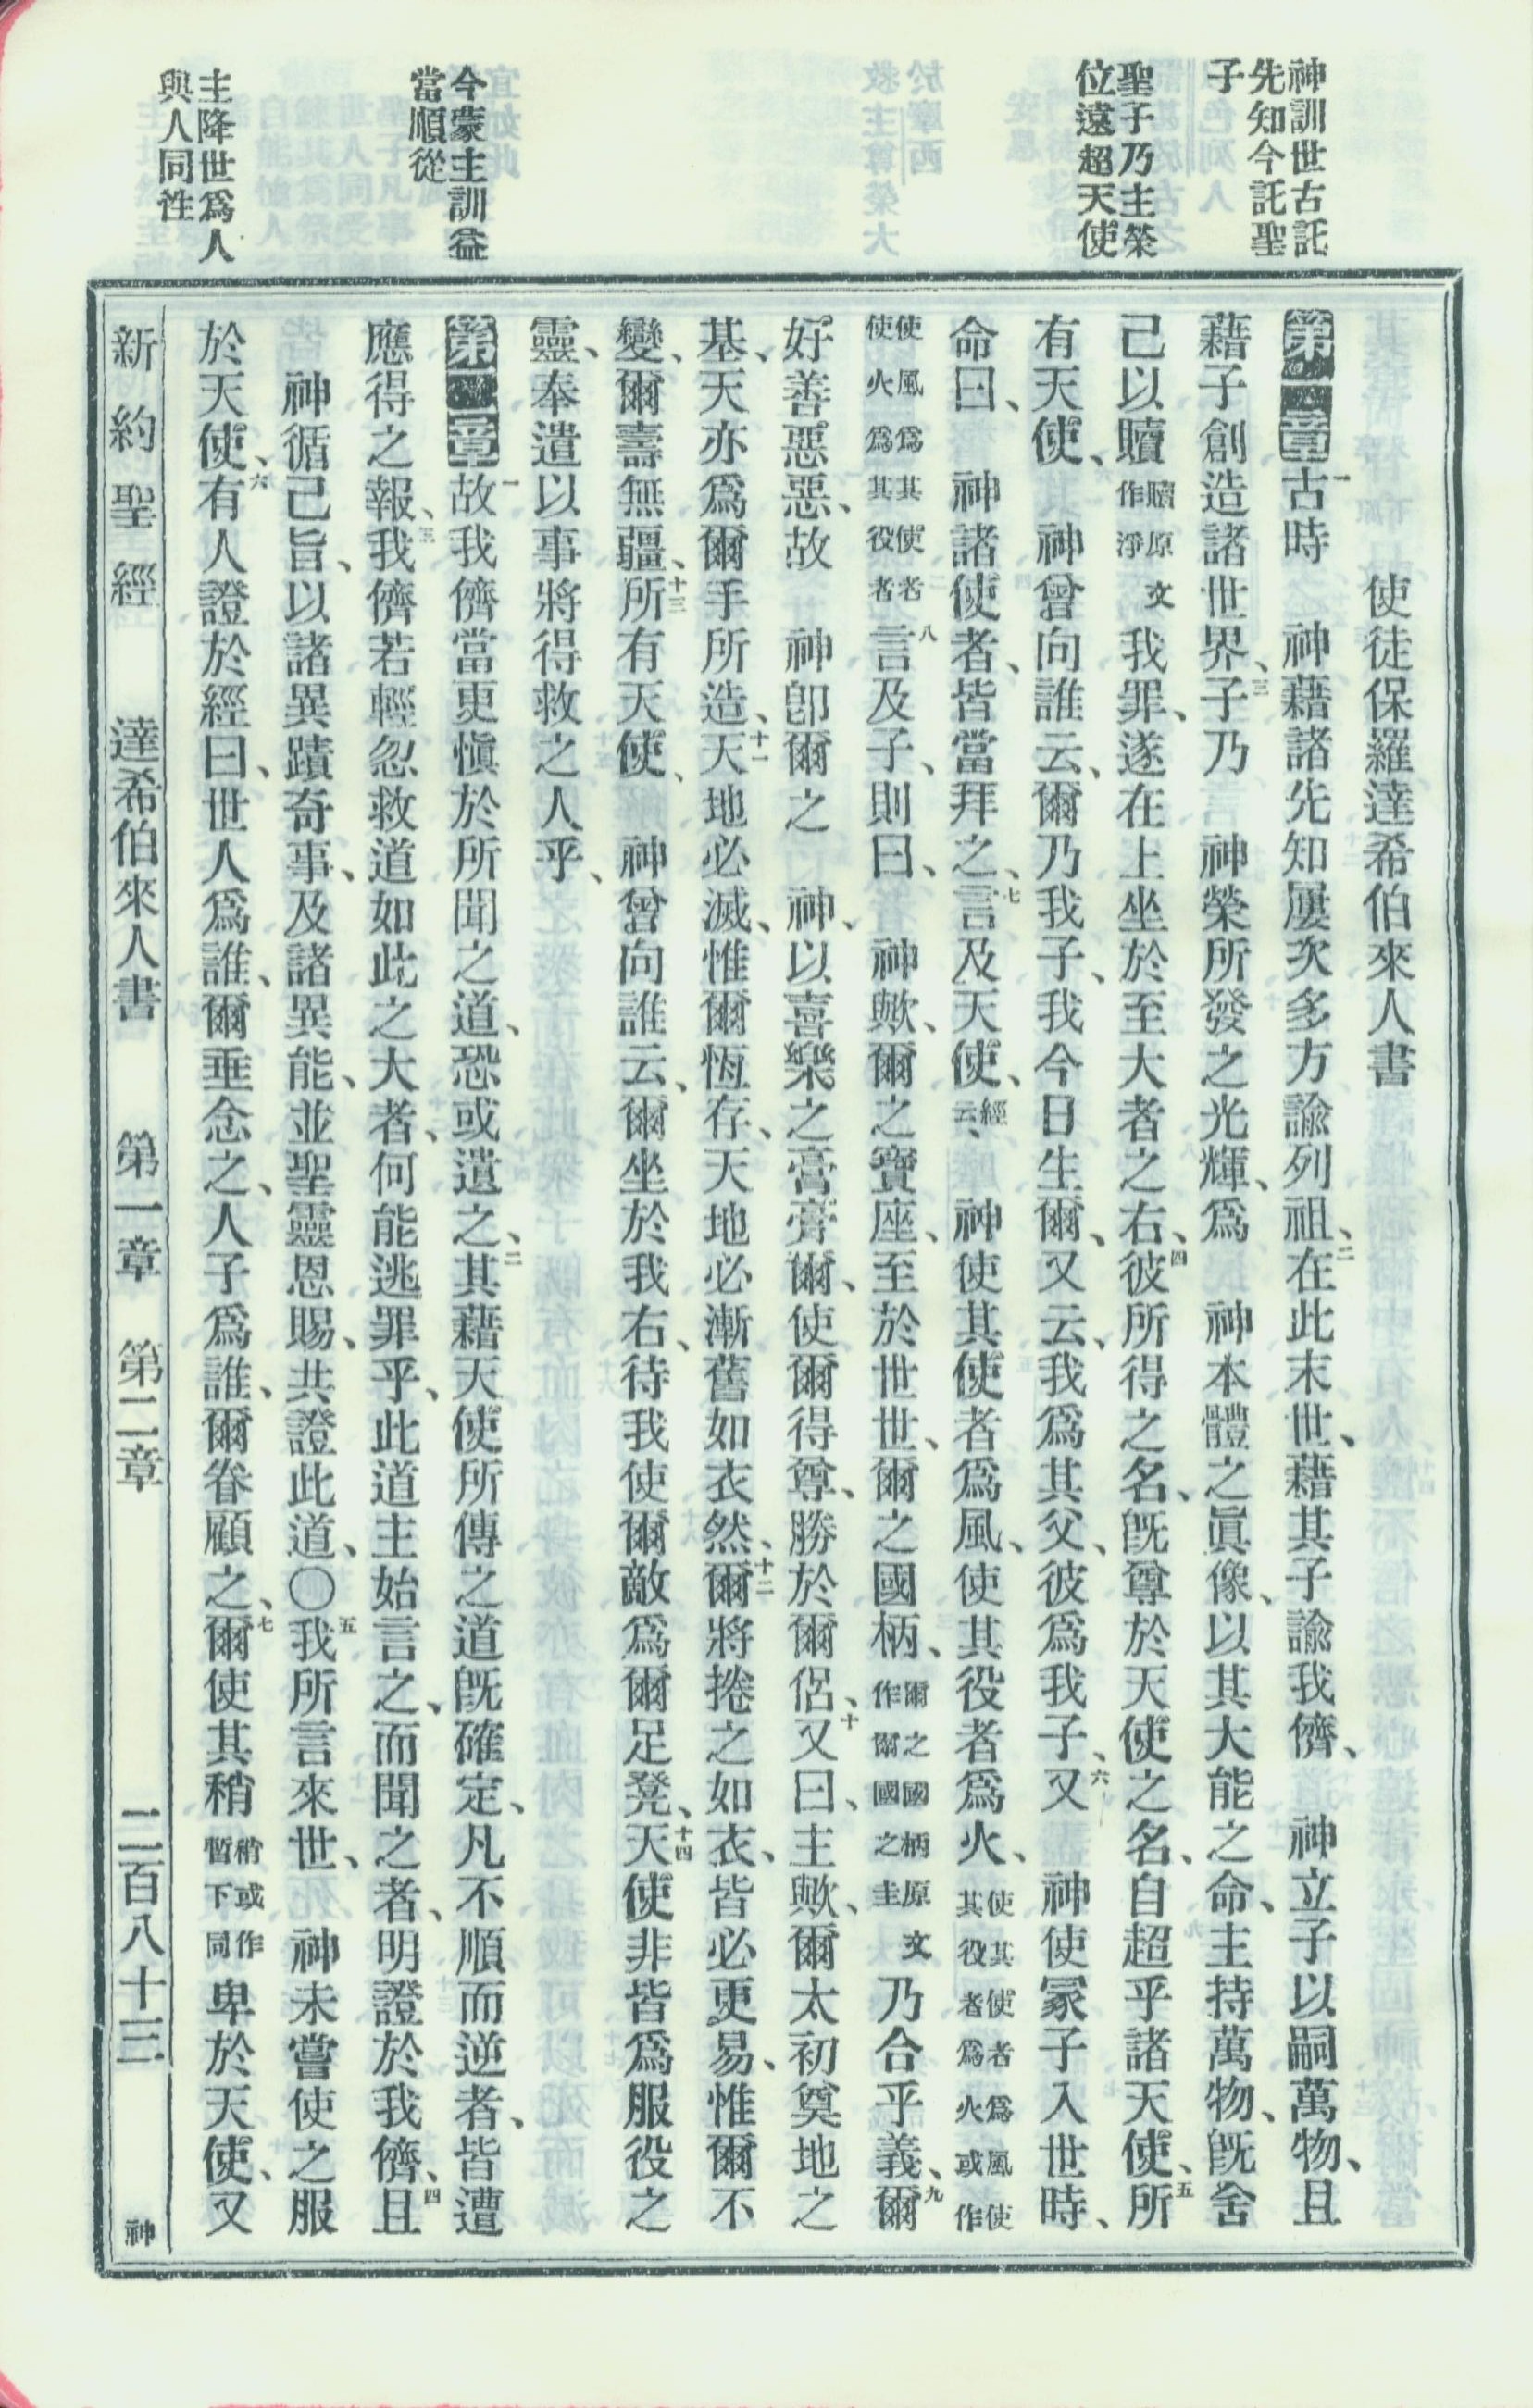 神訓世古託
先知今託聖
子
聖子乃主榮
位遠超天使
今蒙主訓益
當順從
主降世爲人
與人同性
使徒保羅達希伯來人書
第一章一古時　神藉諸先知屢次多方諭列祖、二在此末世、藉其子諭我儕、　神立子以嗣萬物、且
藉子創造諸世界、三子乃　神榮所發之光輝、爲　神本體之眞像、以其大能之命、主持萬物、旣舍
己以贖贖原文作淨我罪、遂在上坐於至大者之右、四彼所得之名、旣尊於天使之名、自超乎諸天使、五所
有天使、　神曾向誰云、爾乃我子、我今日生爾、又云、我爲其父、彼爲我子、六又　神使冢子入世時、
命曰、　神諸使者、皆當拜之、七言及天使、經云、　神使其使者爲風、使其役者爲火、使其使者爲風使其役者爲火或作使
使風爲其使者使火爲其役者八言及子、則曰、　神歟、爾之寶座、至於世世、爾之國柄、爾之國柄原文作爾國之圭乃合乎義、九爾
好善惡惡、故　神卽爾之　神、以喜樂之膏膏爾、使爾得尊、勝於爾侶、十又曰、主歟、爾太初奠地之
基、天亦爲爾手所造、十一天地必滅、惟爾恆存、天地必漸舊如衣然、十二爾將捲之如衣、皆必更易、惟爾不
變、爾壽無疆、十三所有天使、　神曾向誰云、爾坐於我右、待我使爾敵爲爾足凳、十四天使非皆爲服役之
靈、奉遣以事將得救之人乎、
第二章一故我儕當更愼於所聞之道、恐或遺之、二其藉天使所傳之道旣確定、凡不順而逆者、皆遭
應得之報、三我儕若輕忽救道如此之大者、何能逃罪乎、此道主始言之、而聞之者、明證於我儕、四且
神循己旨、以諸異蹟奇事、及諸異能、並聖靈恩賜、共證此道、〇五我所言來世、　神未嘗使之服
於天使、六有人證於經曰、世人爲誰、爾垂念之、人子爲誰、爾眷顧之、七爾使其稍稍或作暫下同卑於天使、又
新約聖經　達希伯來人書　第一章　第二章　二百八十三　神